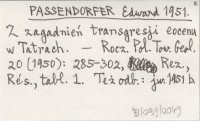 PASSENDORFER Edward 1951.
Z zagadnień transgresji eocenu
w Tatrach. — Rocz. Pol. Tow. Geol.
20 (1950): 285-302, Rez.,
Rés., tabl. 1. Też odb.: już 1951 b.
B/039/0049